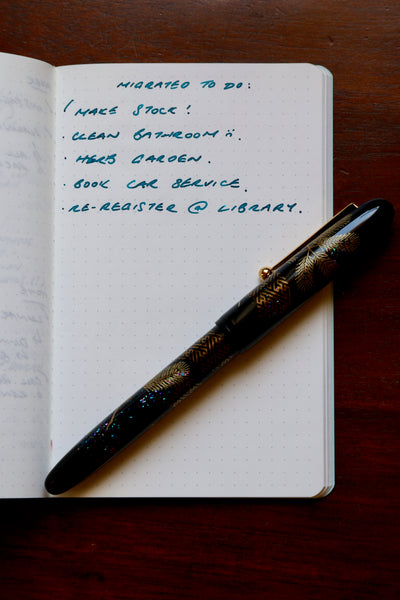 MIGRATED TO DO:
! MAKE STOCK!
· CLEAN BATHROOM ¨̑.
· HERB GARDEN.
· BOOK CAR SERVICE.
· RE-REGISTER @ LIBRARY.